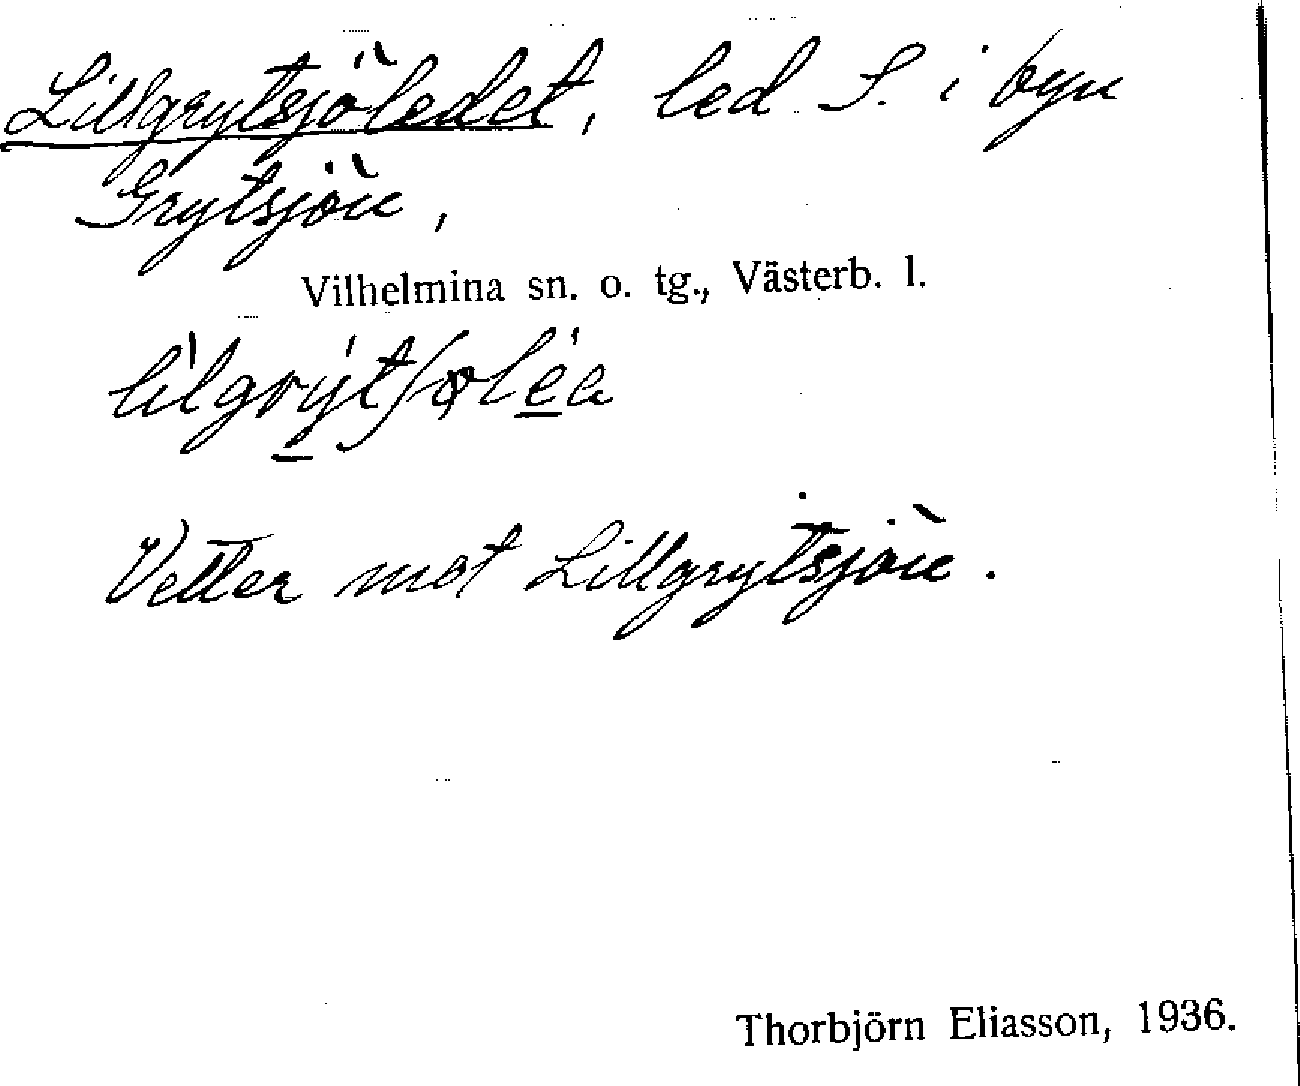 Lillgrytsjöledet, led S. i byn
Grytsjön,
Vilhelmina sn. o. tg., Västerb. l.
Vetter mot Lillgrytsjön.
Thorbjörn Eliasson, 1936.